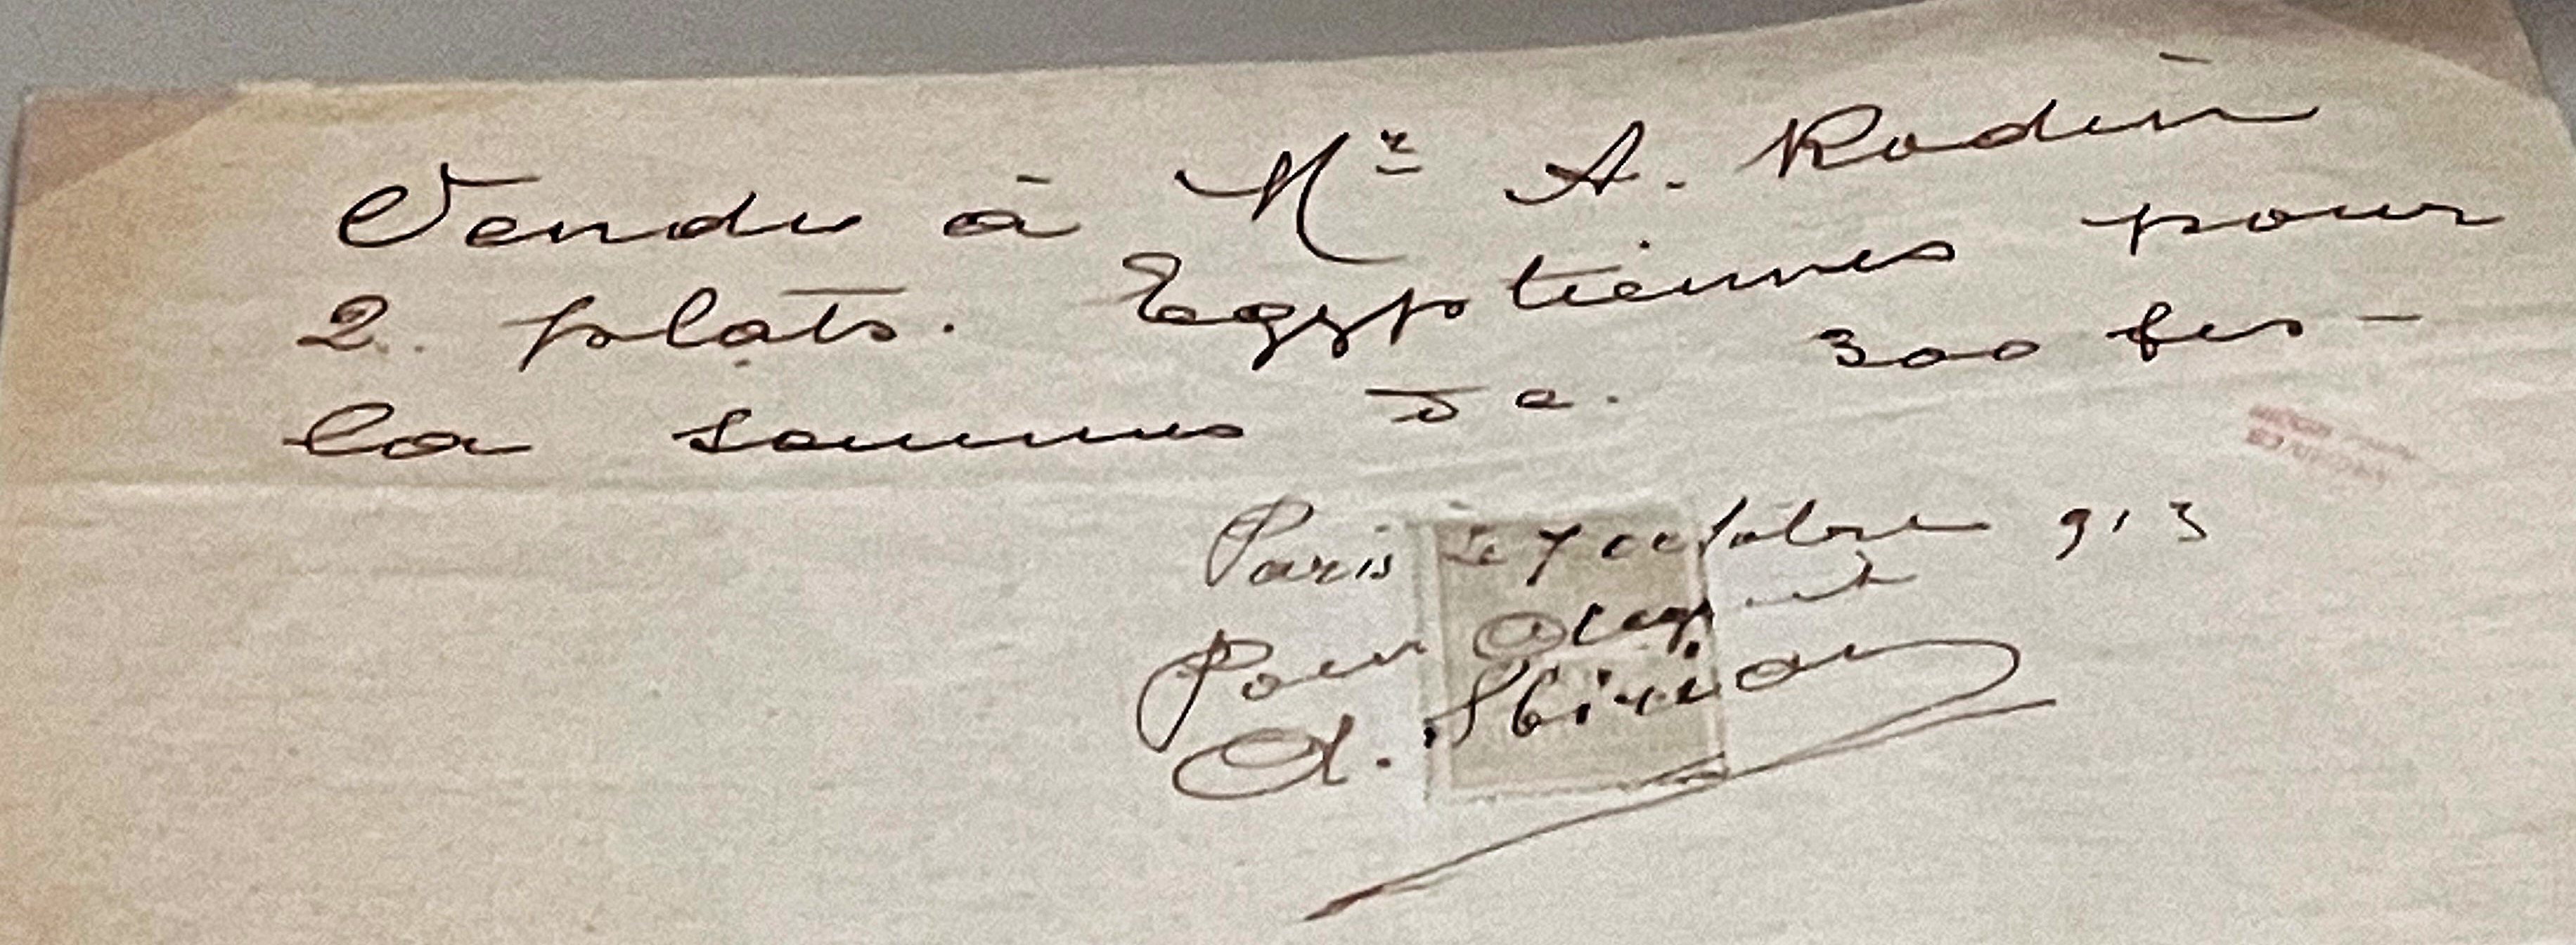 Vendu à Mr A. Rodin
2. plats. Egyptiennes pour
la somme de. 300 frs -
Paris le 7 octobre 913
Pour acquit
A. Sbirian